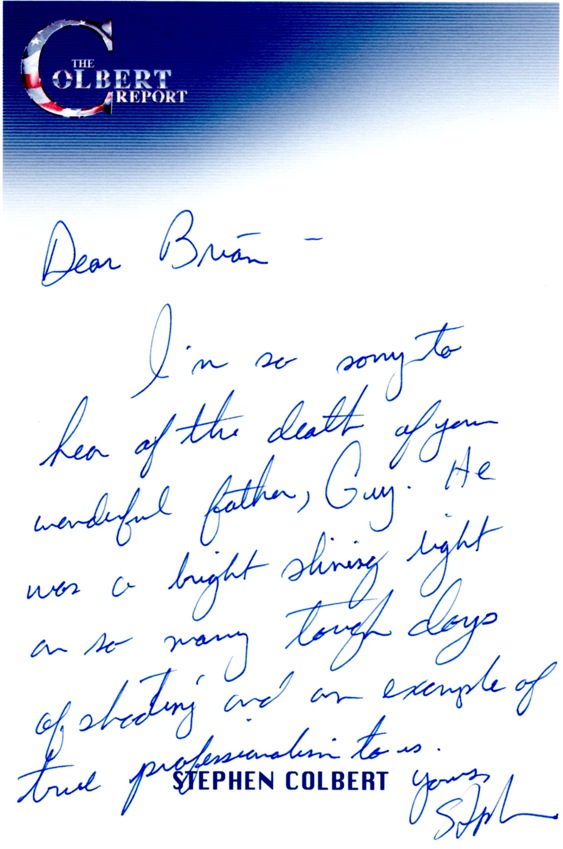 THE
COLBERT
REPORT
Dear Brian –
I'm so sorry to
hear of the death of your
wonderful father, Guy. He
was a bright shining light
on so many tough days
of shooting and an example of
true professionalism to us.
STEPHEN COLBERT
Yours,
Stephen